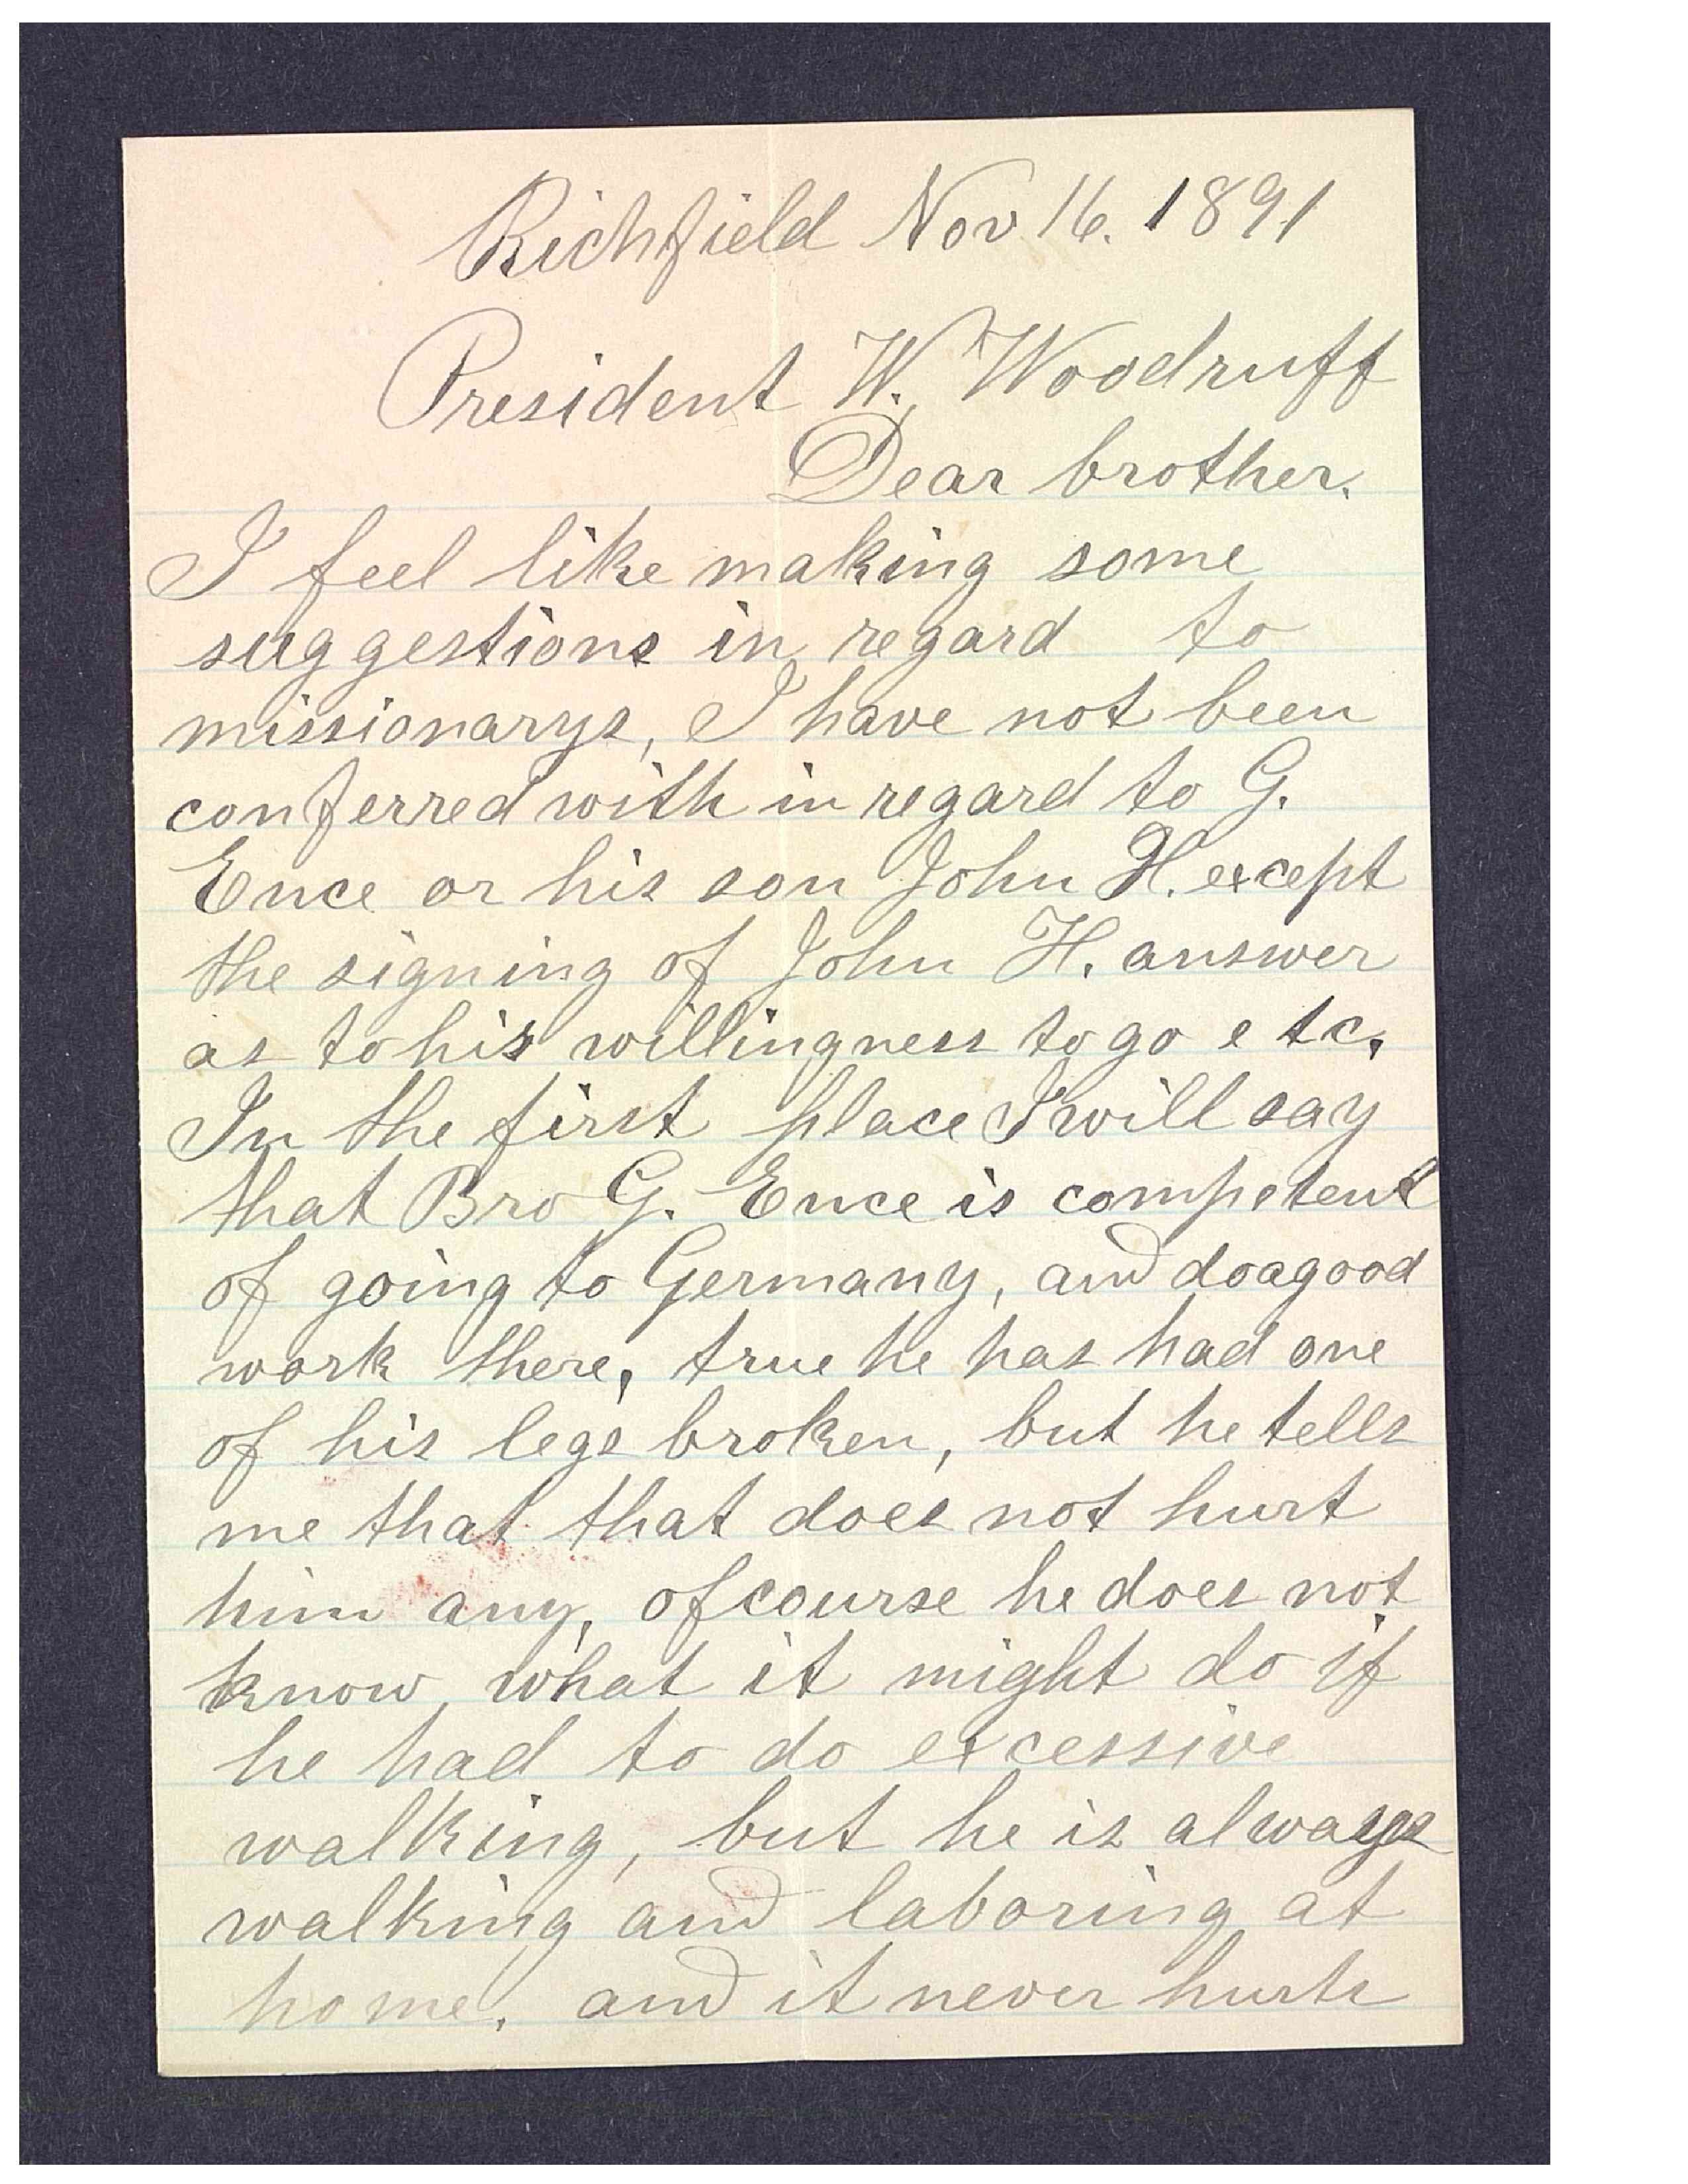 Richfield Nov 16. 1891
President W. Woodruff
Dear brother.
I feel like making some
suggestions in regard to
missionarys, I have not been
conferred with in regard to G.
Ence or his son John H. except
the signing of John H. answer
as to his willingness to go etc.
In the first place I will say
that Bro G. Ence is competent
of going to Germany, and do a good
work there, true he has had one
of his legs broken, but he tells
me that that does not hurt
him any, of course he does not
know, what it might do if
he had to do excessive
walking, but he is always
walking and laboring at
home. and it never hurts